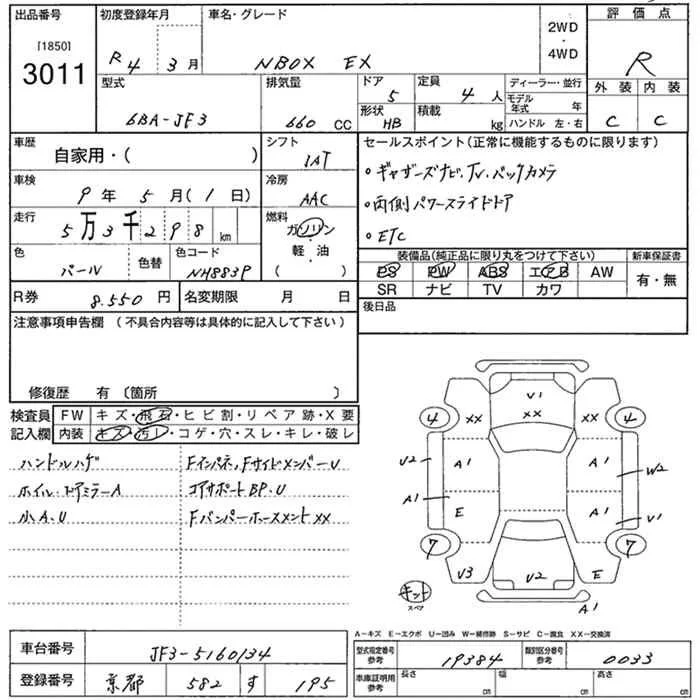 出品番号
［1850］
3011
初度登録年月
R4 3月
車名・グレード
NBOX EX
2WD
・
4WD
評価点
R
外装 内装
C C
型式
6BA-JF3
排気量
660 CC
ドア
5
定員
4 人
形状
HB
積載
kg
ディーラー・並行
モデル年式 年
ハンドル 左・右
車歴
自家用・( )
シフト
IAT
セールスポイント(正常に機能するものに限ります)
・ギャザーズナビ.TV.バックカメラ
・両側パワースライドドア
・ETC
車検
9年5月(1日)
冷房
AAC
走行
5万3千298 km
燃料
ガソリン
・
軽・油
( )
色
パール
色替
色コード
NH883P
装備品(純正品に限り丸をつけて下さい)
PS PW ABS エアB AW
SR ナビ TV カワ
新車保証書
有・無
R券
8.550 円
名変期限 月 日
後日品
注意事項申告欄 （不具合内容等は具体的に記入して下さい）
修復歴 有〔箇所 〕
検査員記入欄
FW キズ・飛石・ヒビ割・リペア跡・X要
内装 キズ・汚レ・コゲ・穴・スレ・キレ・破レ
ハンドルハゲ
ホイル.ドアミラーA
小A.U
Fインパネ,FサイドメンバーU
コアサポートBP.U
Fバンパーホースメントxx
V1
xx
xx
xx
4
4
U2
A1
A1
W2
A1
E
A1
V1
7
7
V3
V2
E
A1
キット
スペア
A―キズ E―エクボ U―凹み W―補修跡 S―サビ C―腐食 XX―交換済
車台番号
JF3-5160134
登録番号
京都 582 す 195
型式指定番号
参考
19384
類別区分番号
参考
0033
車庫証明用
参考
長さ cm
幅 cm
高さ cm